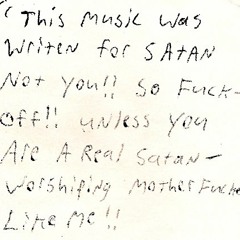 "This Music was
Writen for SATAN
Not you!! So Fuck-
off!! unless you
Are A Real Satan-
Worshiping Motherfucke
Like Me!!